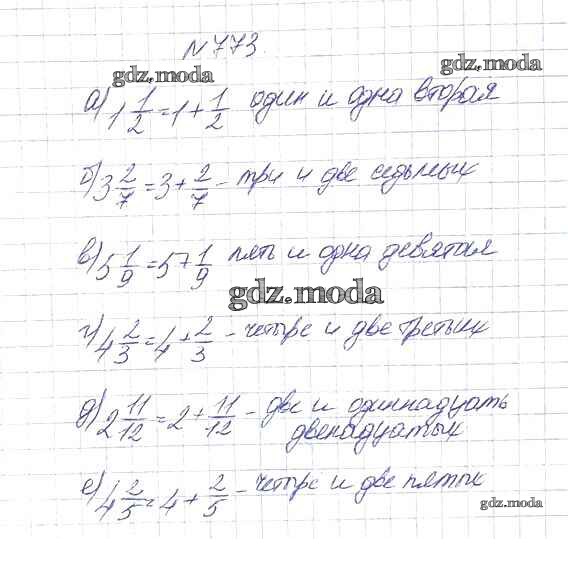 № 773.
gdz.moda
gdz.moda
а) 1 1/2 = 1 + 1/2 один и одна вторая
б) 3 2/7 = 3 + 2/7 - три и две седьмых
в) 5 1/9 = 5 + 1/9 пять и одна девятая
gdz.moda
г) 4 2/3 = 4 + 2/3 - четыре и две третьих
д) 2 11/12 = 2 + 11/12 - две и одиннадцать
двенадцатых
е) 4 2/5 = 4 + 2/5 - четыре и две пятых
gdz.moda